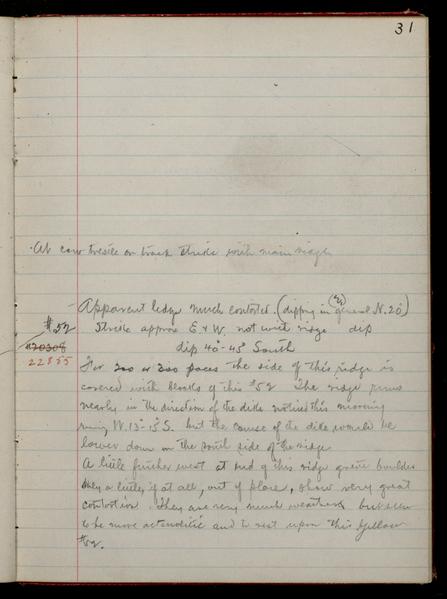 31
At cow trestle on track strike with main ridge
Apparent ledge much contorted. (dipping in general N. 20°)
#52 Strike approx E & W. not with ridge dip
#20308 dip 40°-45° South
22855
For 200 or 300 paces the side of this ridge is
covered with blocks of this #52 The ridge runs
nearly in the direction of the dike noticed this morning
running W. 13°-15° S. but the course of the dike would be
lower down on the south side of the ridge
A little further west at end of this ridge green boulders
only a little, if at all, out of place, show very great
contortion. They are very much weathered but seem
to be more actinolitic and to rest upon this yellow
#52.